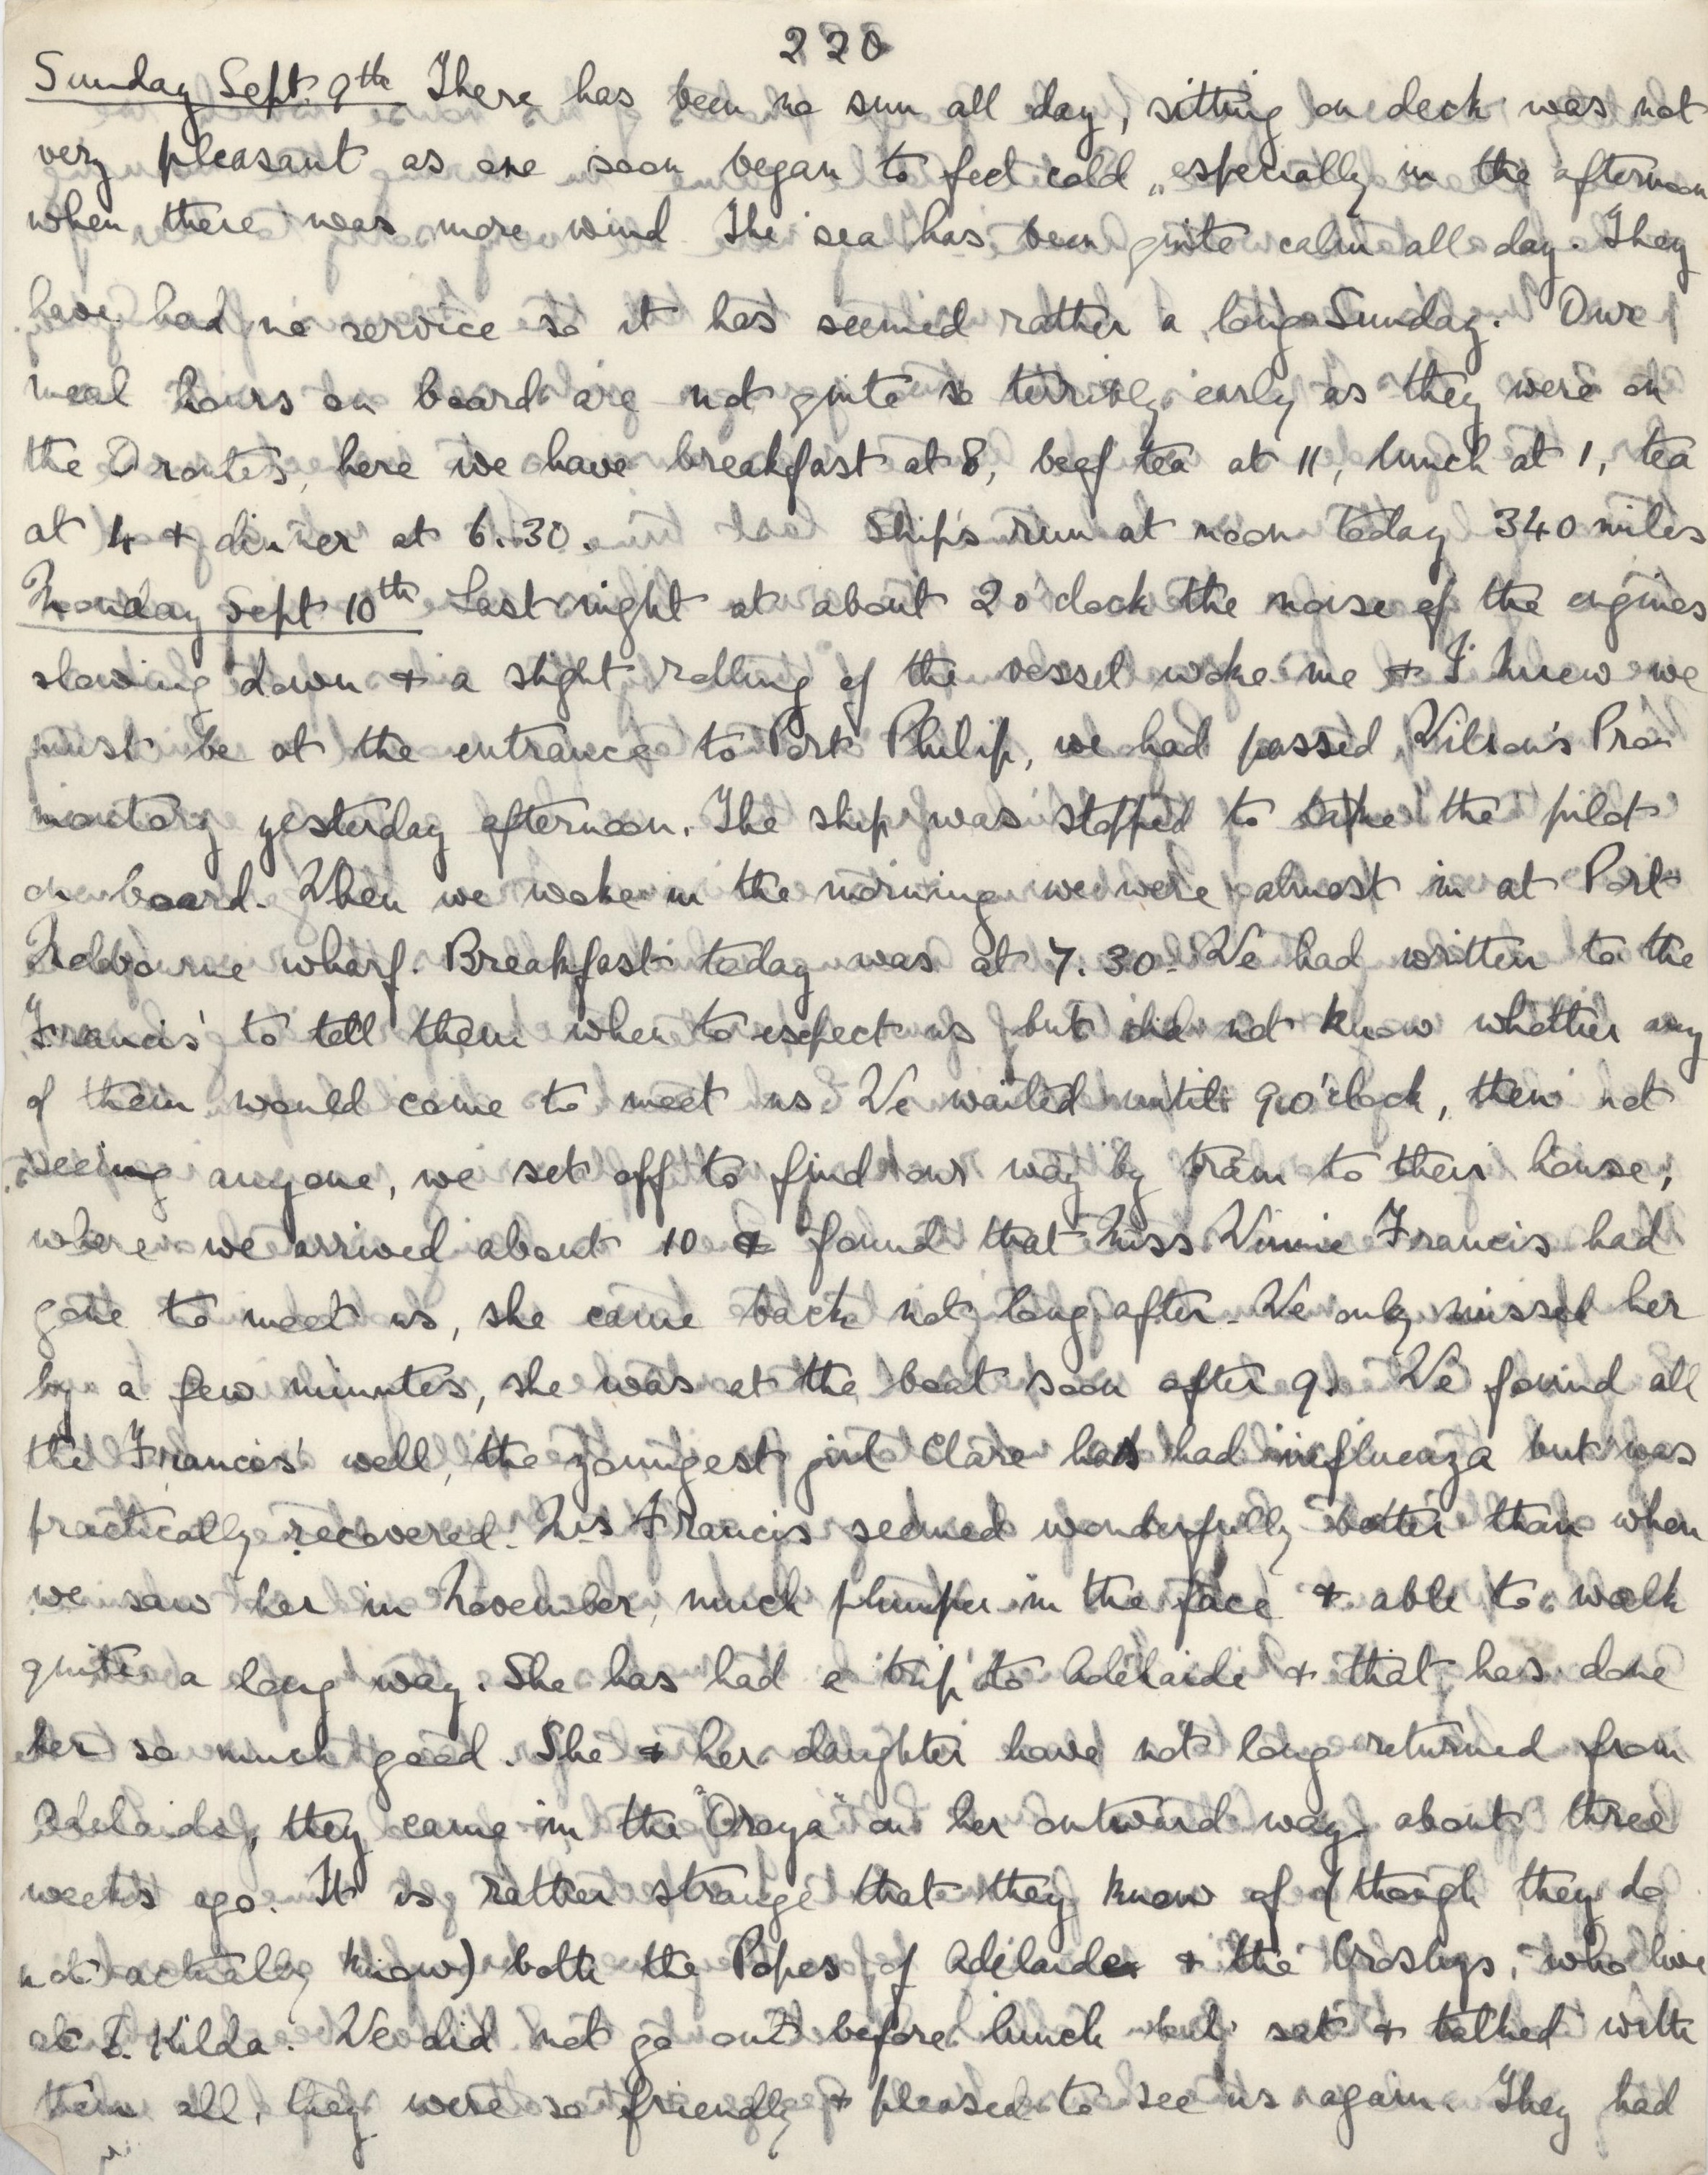 220
Sunday Sept. 9th There has been no sun all day, sitting on deck was not
very pleasant as one soon began to feel cold, especially in the afternoon
when there was more wind. The sea has been quite calm all day. They
have had no service so it has seemed rather a long Sunday. Our
meal hours on board are not quite so terribly early as they were on
the Orontes, here we have breakfast at 8, beef tea at 11, lunch at 1, tea
at 4 & dinner at 6.30. Ship's run at noon today 340 miles
Monday Sept 10th Last night at about 2 o'clock the noise of the engines
slowing down & a slight rolling of the vessel woke me & I knew we
must be at the entrance to Port Philip, we had passed Wilson's Pro-
montory yesterday afternoon. The ship was stopped to take the pilot
on board. When we woke in the morning we were almost in at Port
Melbourne wharf. Breakfast today was at 7.30. We had written to the
Francis' to tell them when to expect us but did not know whether any
of them would come to meet us. We waited until 9 o'clock, then not
seeing anyone, we set off to find our way by tram to their house,
where we arrived about 10 & found that Miss Winnie Francis had
gone to meet us, she came back not long after. We only missed her
by a few minutes, she was at the boat soon after 9. We found all
the Francis' well, the youngest girl Clare has had influenza but was
practically recovered. Mrs Francis seemed wonderfully better than when
we saw her in November, much plumper in the face & able to walk
quite a long way. She has had a trip to Adelaide & that has done
her so much good. She & her daughter have not long returned from
Adelaide, they came in the "Oroya" on her outward way about three
weeks ago. It is rather strange that they know of (though they do
not actually know) both the Popes of Adelaide & the Crosbys, who live
at S. Kilda. We did not go out before lunch but sat & talked with
them all, they were so friendly & pleased to see us again. They had